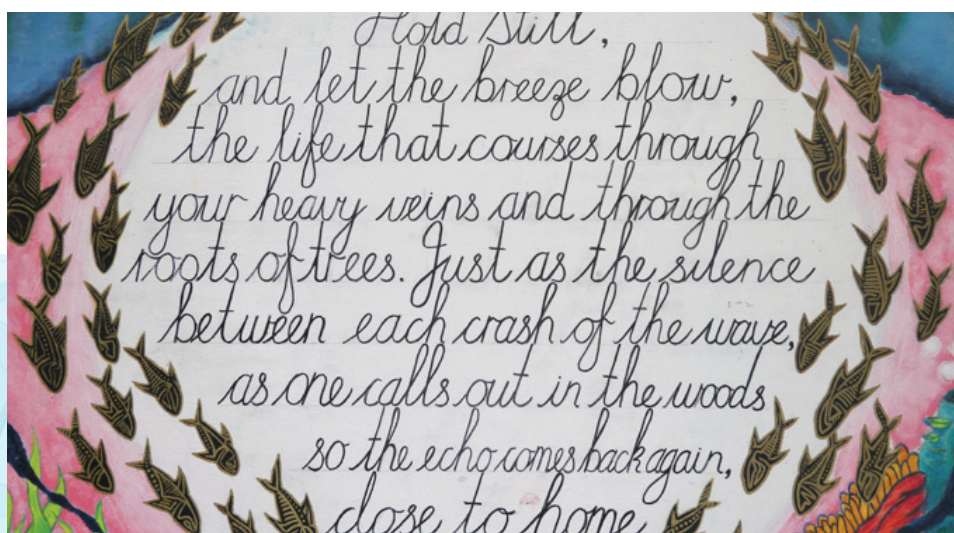 Hold Still,
and let the breeze blow,
the life that courses through
your heavy veins and through the
roots of trees. Just as the silence
between each crash of the wave,
as one calls out in the woods
so the echo comes back again,
close to home